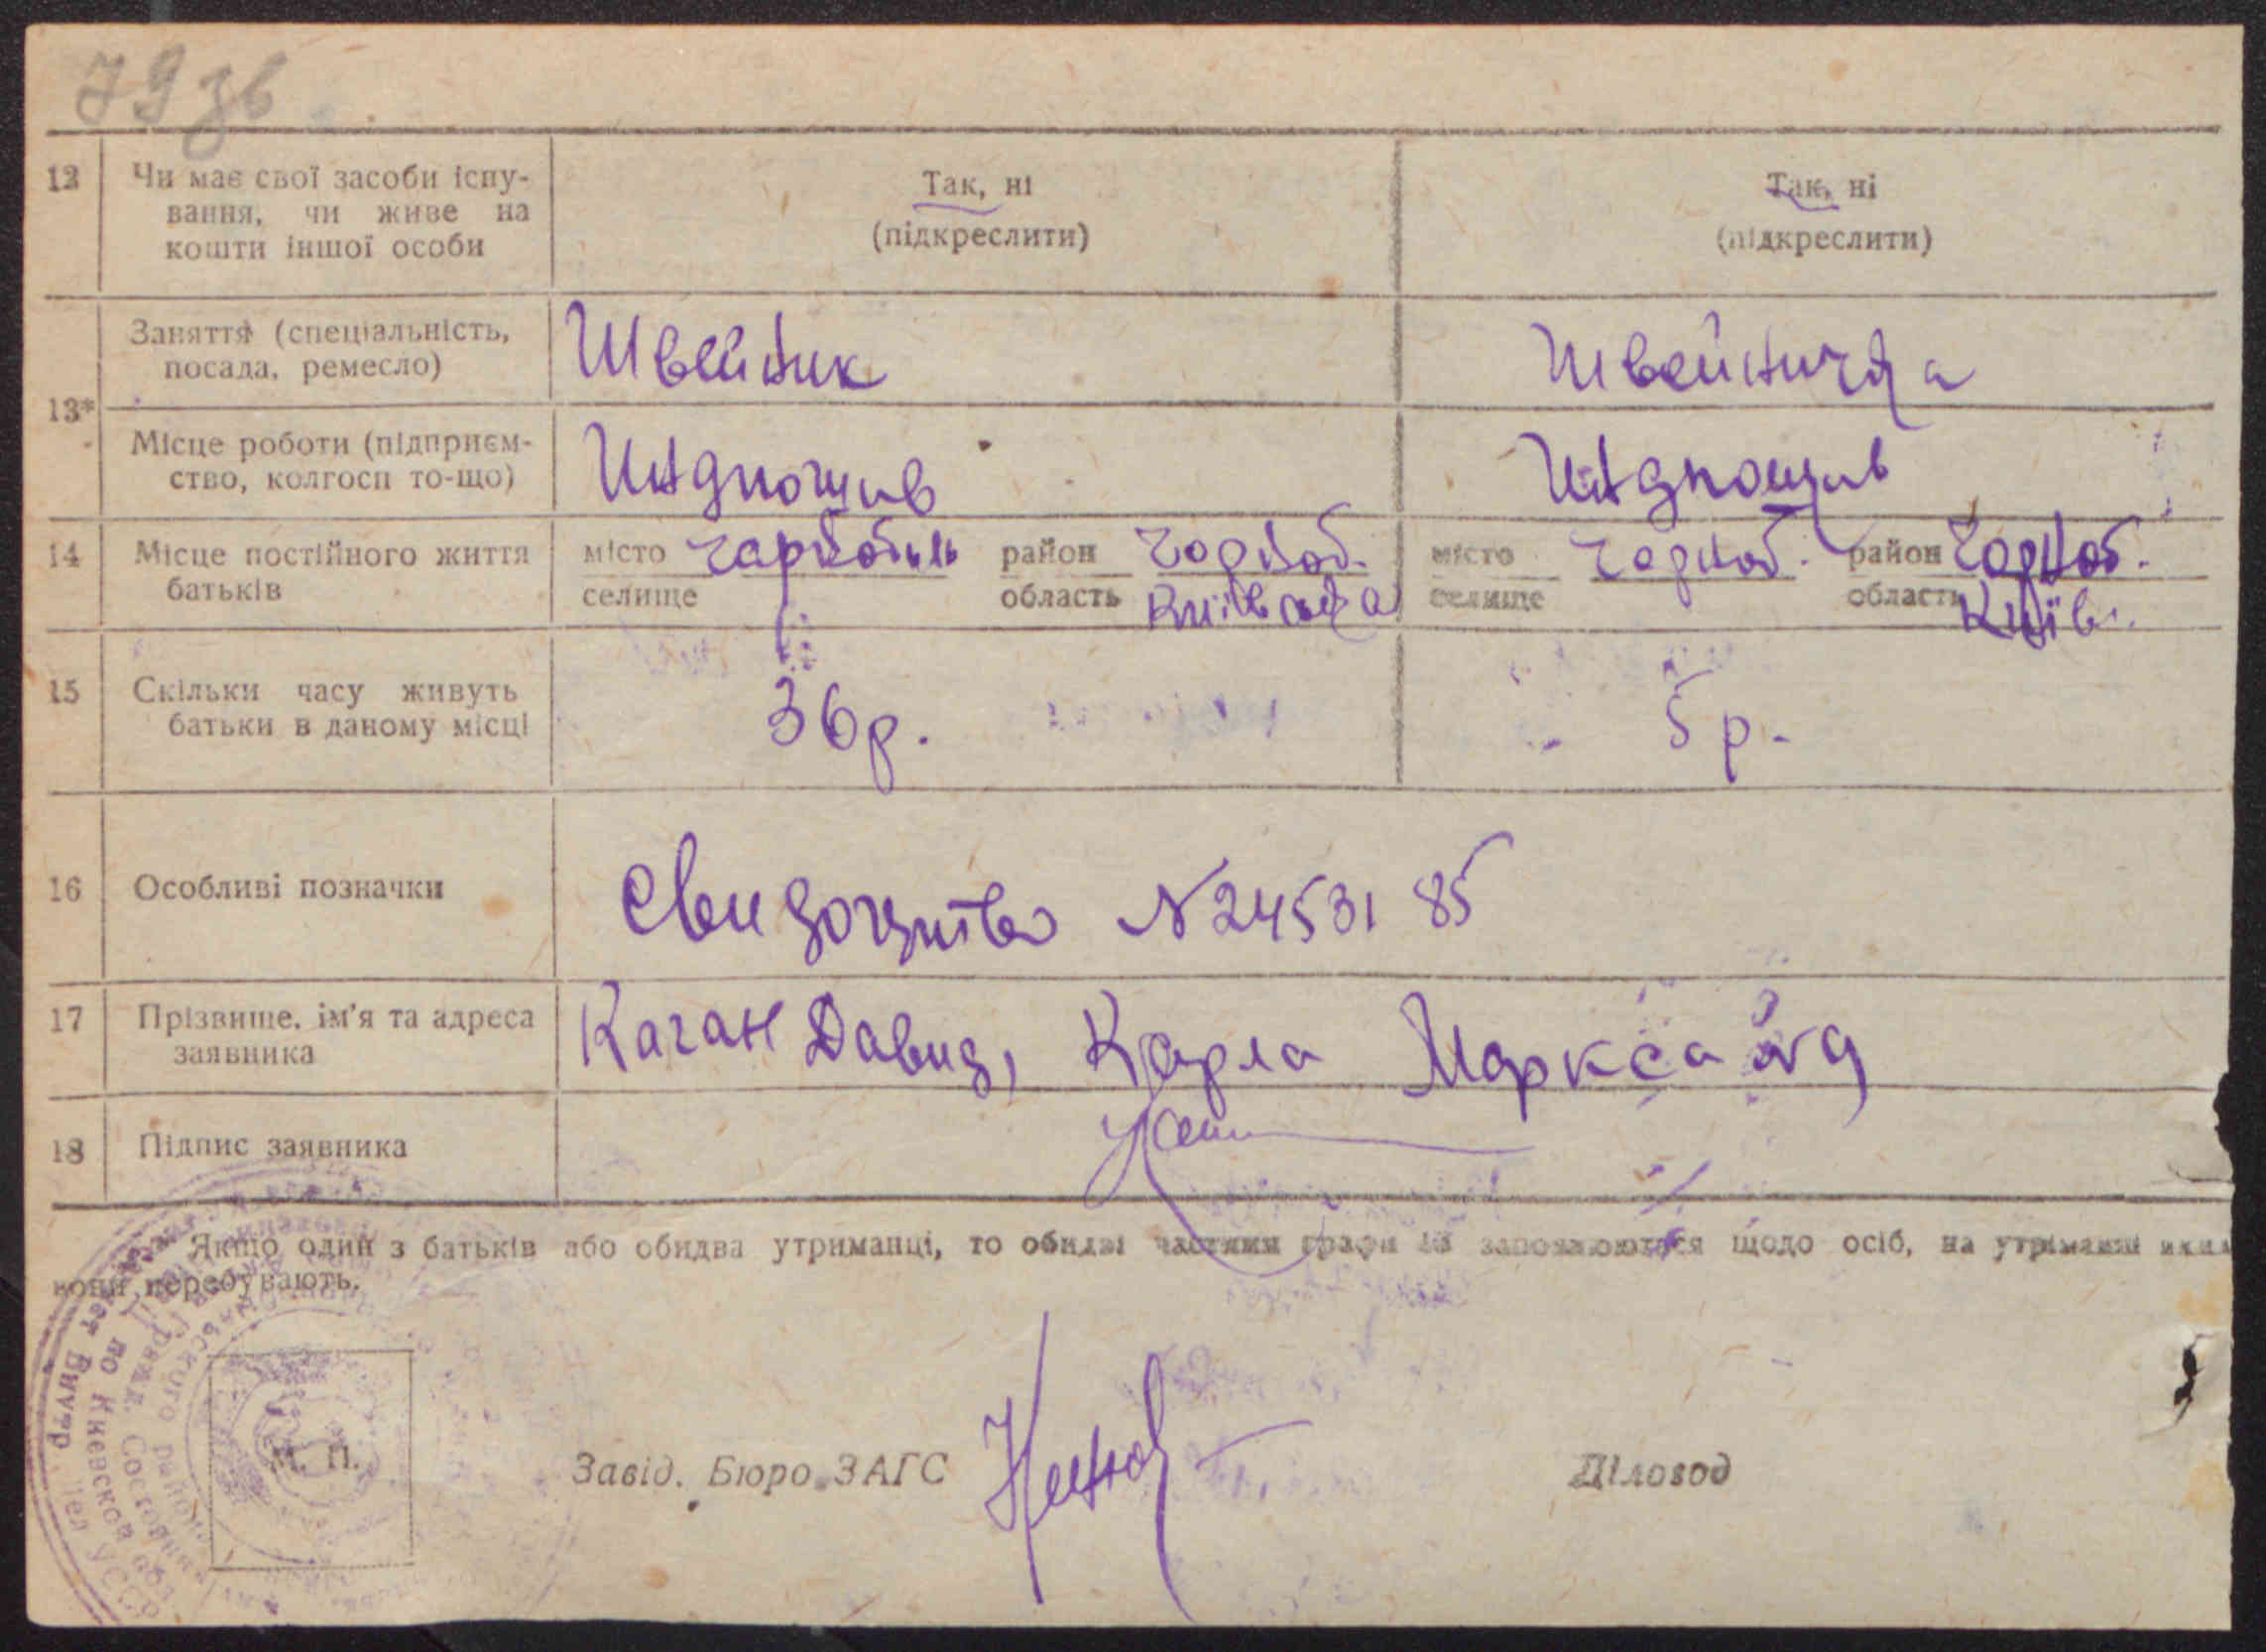 79 зв
12 Чи має свої засоби існу-
вання, чи живе на
кошти іншої особи
Так, ні
(підкреслити)
Так, ні
(підкреслити)
13*
Заняття (спеціальність,
посада, ремесло)
Швейник
Швейничка
Місце роботи (підприєм-
ство, колгосп то-що)
Индпошив
Индпошив
14 Місце постійного життя
батьків
місто Чарнобиль район Чорноб.
селище область Київська
місто Чорноб. район Чорноб.
селище область Київ.
15 Скільки часу живуть
батьки в даному місці
36 р.
5 р.
16 Особливі позначки
Свидоцтво N 24531 85
17 Прізвище, ім'я та адреса
заявника
Каган Давид, Карла Маркса №9
18 Підпис заявника
Якщо один з батьків або обидва утриманці, то обидві частини графи 13 заповнюються щодо осіб, на утриманні яких
вони перебувають.
М. П.
по Киевской обл
УССР
Завід. Бюро ЗАГС
Діловод